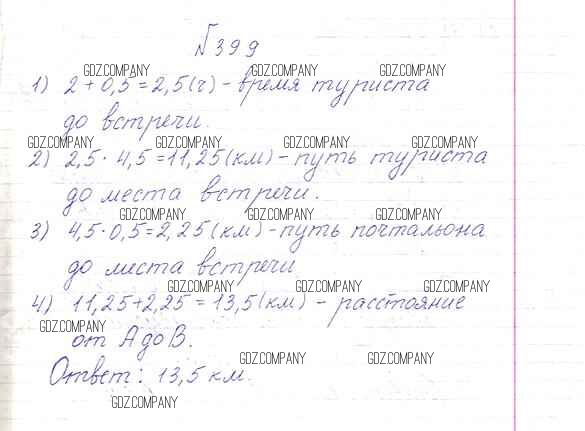 №399
GDZ.COMPANY GDZ.COMPANY GDZ.COMPANY
1) 2 + 0,5 = 2,5 (ч) - время туриста
до встречи.
GDZ.COMPANY GDZ.COMPANY GDZ.COMPANY GDZ.COMPANY
2) 2,5 · 4,5 = 11,25 (км) - путь туриста
до места встречи.
GDZ.COMPANY GDZ.COMPANY GDZ.COMPANY
3) 4,5 · 0,5 = 2,25 (км) - путь почтальона
до места встречи
GDZ.COMPANY GDZ.COMPANY GDZ.COMPANY
4) 11,25 + 2,25 = 13,5 (км) - расстояние
GDZ.COMPANY
от А до В.
GDZ.COMPANY GDZ.COMPANY
Ответ: 13,5 км.
GDZ.COMPANY